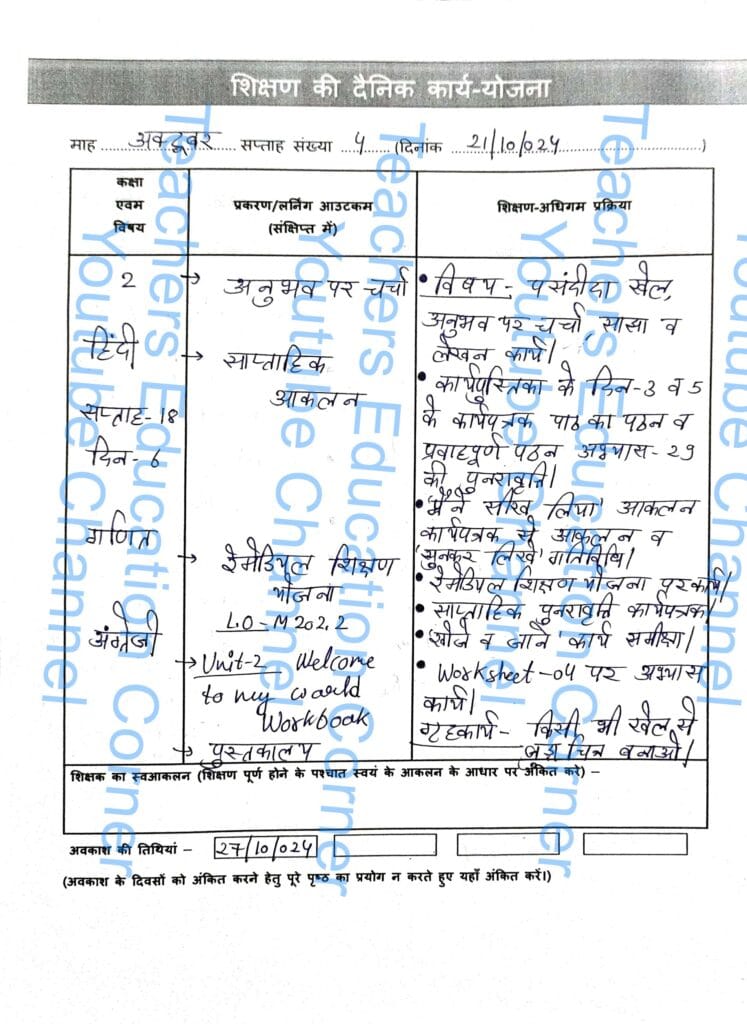 शिक्षण की दैनिक कार्य-योजना
माह अक्टूबर सप्ताह संख्या 4 (दिनांक 21/10/024)
कक्षा
एवम
विषय
प्रकरण/लर्निंग आउटकम
(संक्षिप्त में)
शिक्षण-अधिगम प्रक्रिया
2
हिंदी
सप्ताह-18
दिन-6
गणित
अंग्रेजी
→ अनुभव पर चर्चा
→ साप्ताहिक
आकलन
→ रेमेडियल शिक्षण
योजना
L.O-M202.2
→ Unit-2 Welcome
to my world
Workbook
→ पुस्तकालय
• विषय- पसंदीदा खेल,
अनुभव पर चर्चा, साझा व
लेखन कार्य।
• कार्यपुस्तिका के दिन-3 व 5
के कार्यपत्रक पाठ का पठन व
प्रवाहपूर्ण पठन अभ्यास-29
की पुनरावृत्ति।
• 'मैंने सीख लिया' आकलन
कार्यपत्रक से आकलन व
'सुनकर लिखें' गतिविधि।
• रेमेडियल शिक्षण योजना पर कार्य।
• साप्ताहिक पुनरावृत्ति कार्यपत्रक।
• 'खोजें व जानें' कार्य समीक्षा।
• Worksheet-04 पर अभ्यास
कार्य।
गृहकार्य- किसी भी खेल से
जुड़ा चित्र बनाओ।
शिक्षक का स्वआकलन (शिक्षण पूर्ण होने के पश्चात स्वयं के आकलन के आधार पर अंकित करे) –
अवकाश की तिथियां – 27/10/024
(अवकाश के दिवसों को अंकित करने हेतु पूरे पृष्ठ का प्रयोग न करते हुए यहाँ अंकित करें।)
Teachers Education Corner
Youtube Channel
Teachers Education Corner
Youtube Channel
Teachers Education Corner
Youtube Channel